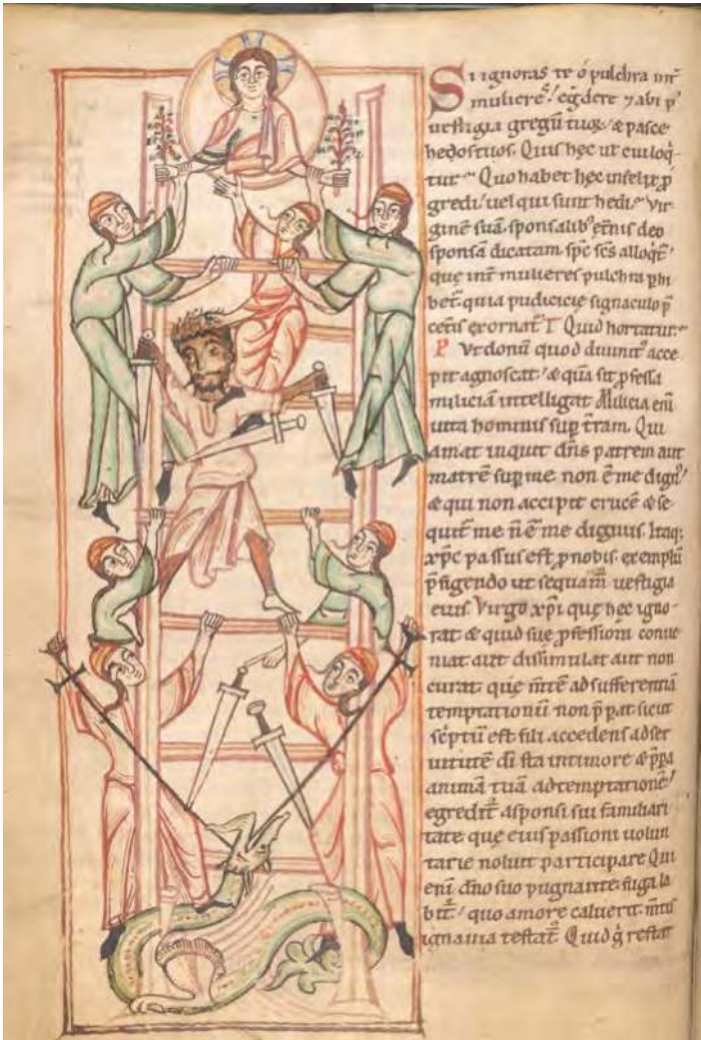 Si ignoras te o pulchra int̄
mulieres / egđere ⁊ abi p᷒
uestigia gregū tuoꝝ / & pasce
hedos tuos. Quis hęc ut cui loqͥ-
tur. Quo habet hęc infelix ꝓ
gredi / uel qui sunt hedi. Vir-
ginē suā sponsalib᷒ et̄nis deo
sponsā dicatam sp̄c sc̄s alloqͥt᷒
quę int̄ mulieres pulchra ꝑhi
bet̄ quia pudicicię signaculo p̄
ceteris exornat̄ T Quid hortatur.
P Vt donū quod diuinit᷒ acce
pit agnoscat / & quā sit ꝓfessa
miliciā intelligat Milicia enī
uita hominis suꝑ t̄ram. Qui
amat inquit dn̄s patrem aut
matrē suꝑ me non ē me dign᷒ /
& qui non accipit crucē & se-
quit̄ me n̄ ē me dignus. Itaqꝫ
xp̄c passus est ꝓ nobis exemplū
p̄figendo ut sequam̄ uestigia
eius. Virgo xp̄i quę hęc igno-
rat & quid suę ꝓfessioni conue
niat aut dissimulat aut non
curat. quę m̄tē ad sufferentiā
temptationū non p̄parat sicut
sc̄ptū est fili accedens ad ser
uitutē di sta in timore & p̄pa
animā tuā ad temptationē /
egredit̄ a sponsi sui familiari
tate. quę eius passioni uolun
tarie noluit participare Qui
enī dn̄o suo pugnante fuga la
bit̄ / quo amore caluerit. m̄tis
ignauia testat̄ Quid ḡ restat